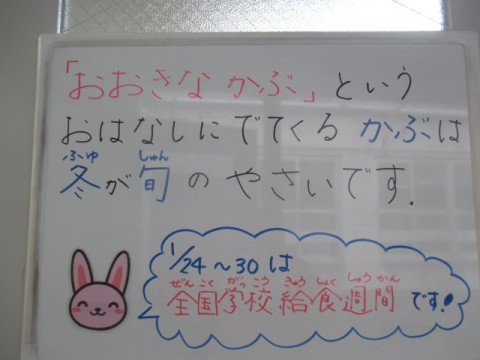 「おおきな かぶ」という
おはなしにでてくる かぶは
ふゆ しゅん
冬が旬のやさいです.
1/24〜30は
ぜんこくがっこうきゅうしょくしゅうかん
全国学校給食週間です!